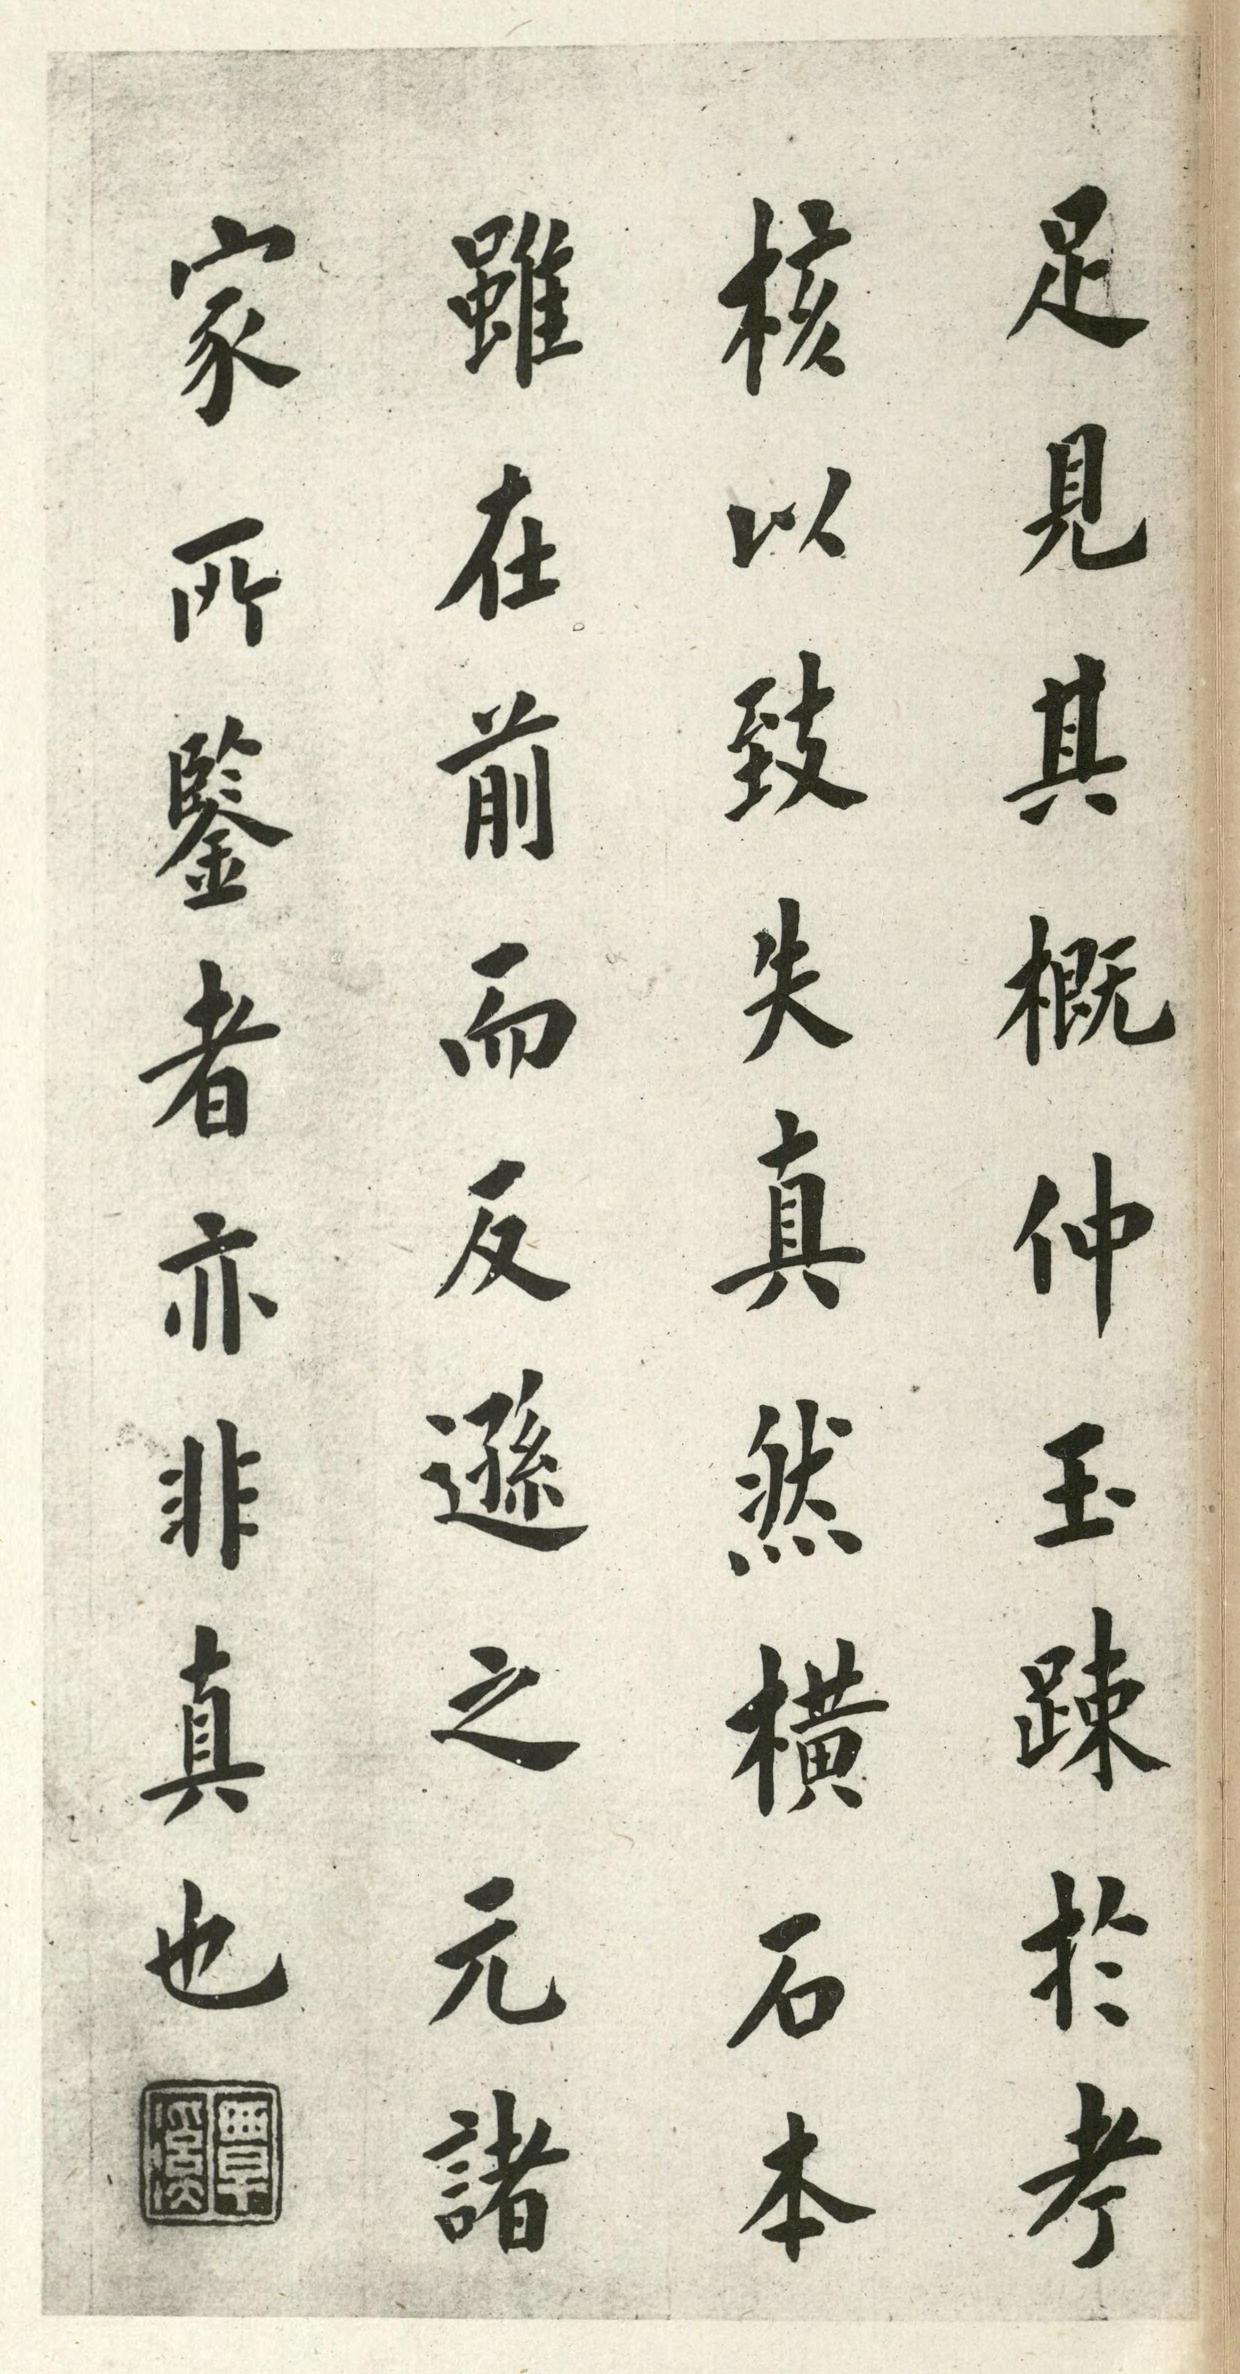 足見其概仲玉踈於考
核以致失真然橫石本
雖在前而反遜之元諸
家所鑒者亦非真也